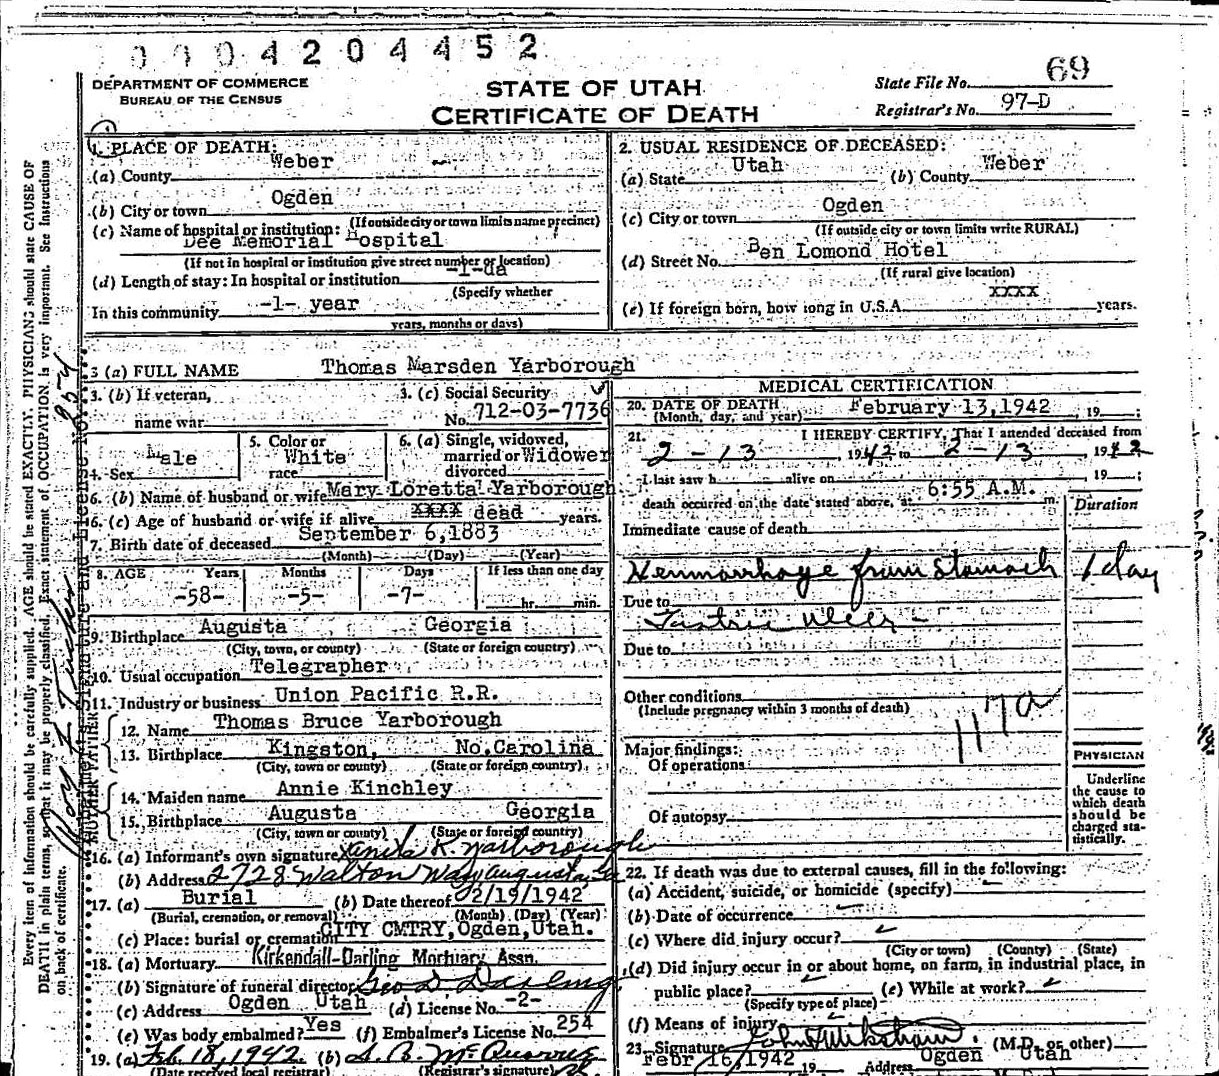 0004204452
DEPARTMENT OF COMMERCE
BUREAU OF THE CENSUS
STATE OF UTAH
CERTIFICATE OF DEATH
State File No. 69
Registrar's No. 97-D
1. PLACE OF DEATH:
(a) County Weber
(b) City or town Ogden
(If outside city or town limits name precinct)
(c) Name of hospital or institution:
Dee Memorial Hospital
(If not in hospital or institution give street number or location)
(d) Length of stay: In hospital or institution -1-da
(Specify whether
In this community -1- year
years, months or days)
2. USUAL RESIDENCE OF DECEASED:
(a) State Utah (b) County Weber
(c) City or town Ogden
(If outside city or town limits write RURAL)
(d) Street No. Ben Lomond Hotel
(If rural give location)
(e) If foreign born, how long in U.S.A. xxxx years.
3 (a) FULL NAME Thomas Marsden Yarborough
3. (b) If veteran,
name war
3. (c) Social Security
No. 712-03-7736
4. Sex Male
5. Color or
race White
6. (a) Single, widowed,
married or Widower
divorced
6. (b) Name of husband or wife Mary Loretta Yarborough
6. (c) Age of husband or wife if alive xxxx dead years.
7. Birth date of deceased September 6,1883
(Month) (Day) (Year)
8. AGE Years Months Days If less than one day
-58- -5- -7- hr. min.
9. Birthplace Augusta Georgia
(City, town, or county) (State or foreign country)
10. Usual occupation Telegrapher
11. Industry or business Union Pacific R.R.
FATHER
12. Name Thomas Bruce Yarborough
13. Birthplace Kingston, No.Carolina
(City, town or county) (State or foreign country)
MOTHER
14. Maiden name Annie Kinchley
15. Birthplace Augusta Georgia
(City, town or county) (State or foreign country)
16. (a) Informant's own signature Yarborough
(b) Address 2728 Walton Way Augusta, Ga
17. (a) Burial (b) Date thereof 2/19/1942
(Burial, cremation, or removal) (Month) (Day) (Year)
(c) Place: burial or cremation CITY CMTRY, Ogden, Utah.
18. (a) Mortuary Kirkendall-Darling Mortuary Assn.
(b) Signature of funeral director Geo D Darling
(c) Address Ogden Utah (d) License No. -2-
(e) Was body embalmed? Yes (f) Embalmer's License No. 254
19. (a) Feb. 18, 1942 (b)
(Date received local registrar) (Registrar's signature)
MEDICAL CERTIFICATION
20. DATE OF DEATH February 13,1942, 19 ;
(Month, day, and year)
21. I HEREBY CERTIFY, That I attended deceased from
2-13, 1942 to 2-13, 1942
I last saw h alive on , 19 ;
death occurred on the date stated above, at 6:55 A.M. m.
Duration
Immediate cause of death
Hemmorrhage from Stomach 1 day
Due to
Gastric Ulcer -
Due to
Other conditions
(Include pregnancy within 3 months of death)
117a
Major findings:
Of operations
Of autopsy
PHYSICIAN
Underline
the cause to
which death
should be
charged sta-
tistically.
22. If death was due to external causes, fill in the following:
(a) Accident, suicide, or homicide (specify)
(b) Date of occurrence
(c) Where did injury occur?
(City or town) (County) (State)
(d) Did injury occur in or about home, on farm, in industrial place, in
public place? (e) While at work?
(Specify type of place)
(f) Means of injury
23. Signature (M.D. or other)
Febr 16,1942 19 Address Ogden Utah
Every item of information should be carefully supplied. AGE should be stated EXACTLY. PHYSICIANS should state CAUSE OF
DEATH in plain terms, so that it may be properly classified. Exact statement of OCCUPATION is very important. See instructions
on back of certificate.